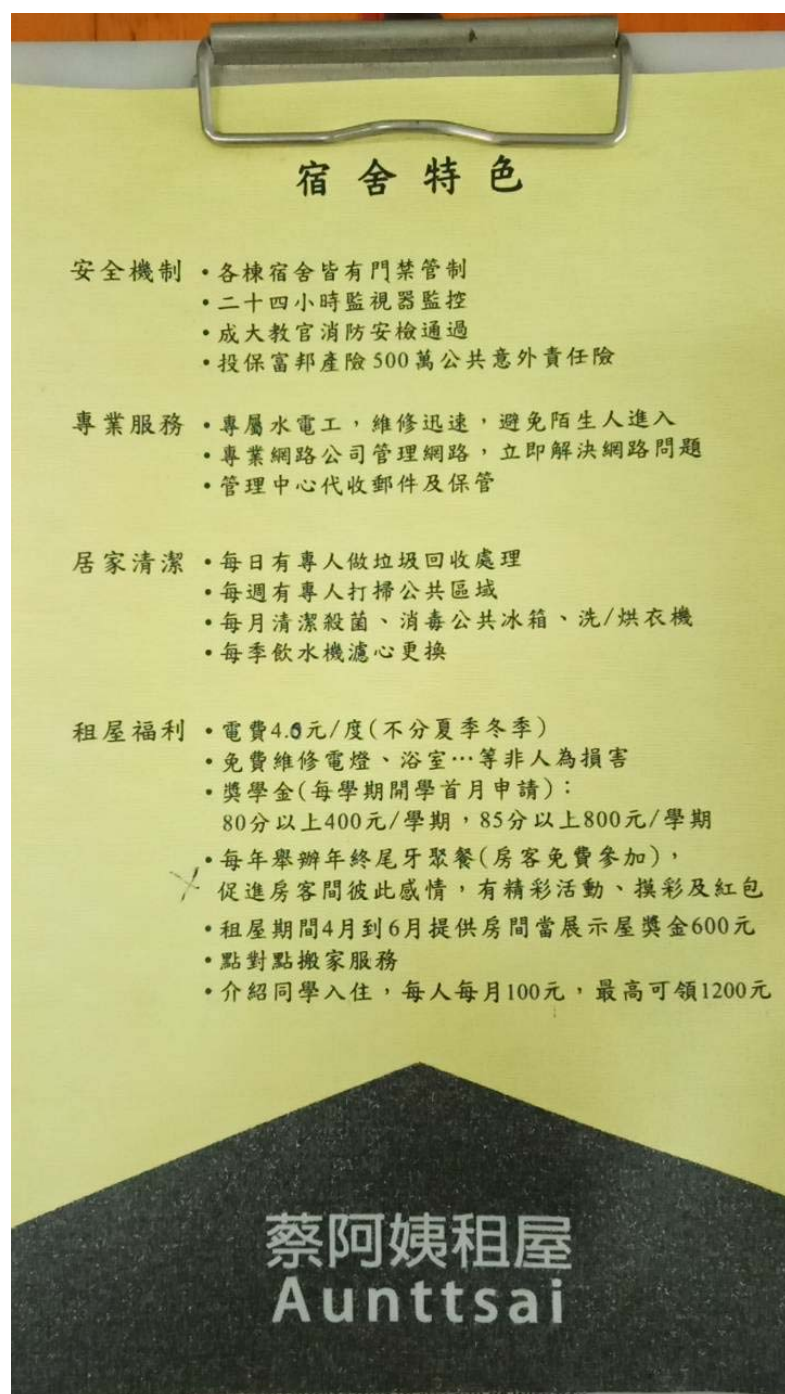 宿舍特色
安全機制 •各棟宿舍皆有門禁管制
•二十四小時監視器監控
•成大教官消防安檢通過
•投保富邦產險500萬公共意外責任險
專業服務 •專屬水電工，維修迅速，避免陌生人進入
•專業網路公司管理網路，立即解決網路問題
•管理中心代收郵件及保管
居家清潔 •每日有專人做垃圾回收處理
•每週有專人打掃公共區域
•每月清潔殺菌、消毒公共冰箱、洗/烘衣機
•每季飲水機濾心更換
租屋福利 •電費4.元/度(不分夏季冬季)
•免費維修電燈、浴室…等非人為損害
•獎學金(每學期開學首月申請)：
80分以上400元/學期，85分以上800元/學期
•每年舉辦年終尾牙聚餐(房客免費參加)，
促進房客間彼此感情，有精彩活動、摸彩及紅包
•租屋期間4月到6月提供房間當展示屋獎金600元
•點對點搬家服務
•介紹同學入住，每人每月100元，最高可領1200元
蔡阿姨租屋
Aunttsai